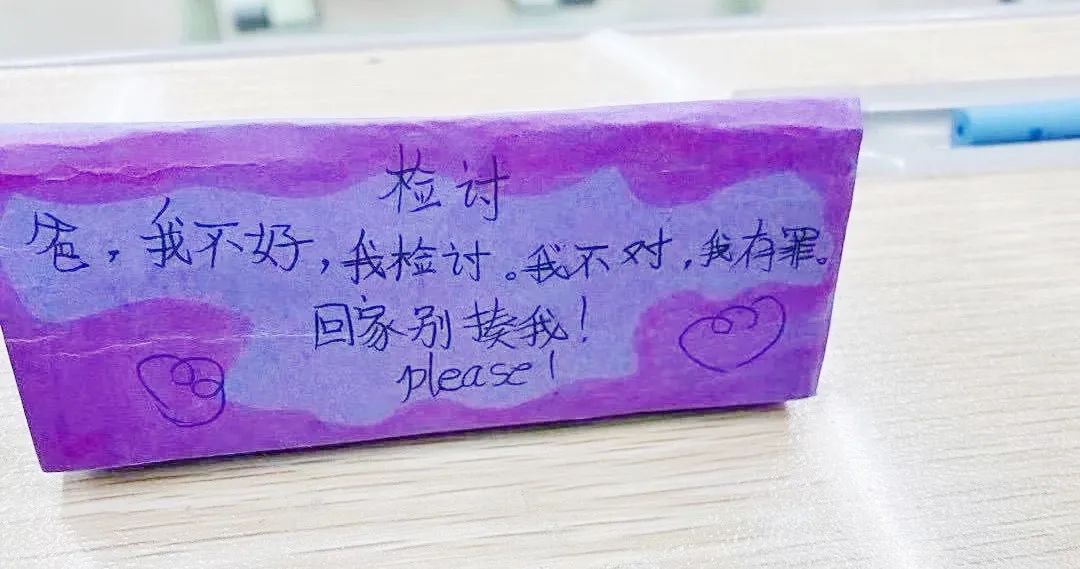 检讨
爸，我不好，我检讨。我不对，我有罪。
回家别揍我！
please!